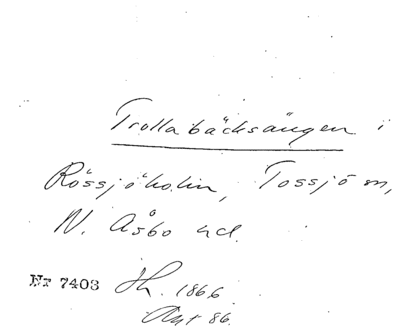 Trollabäcksängen i
Rössjöholm, Tossjö sn,
N. Åsbo hd.
Nr 7403 Sk. 1866
Ant 86.